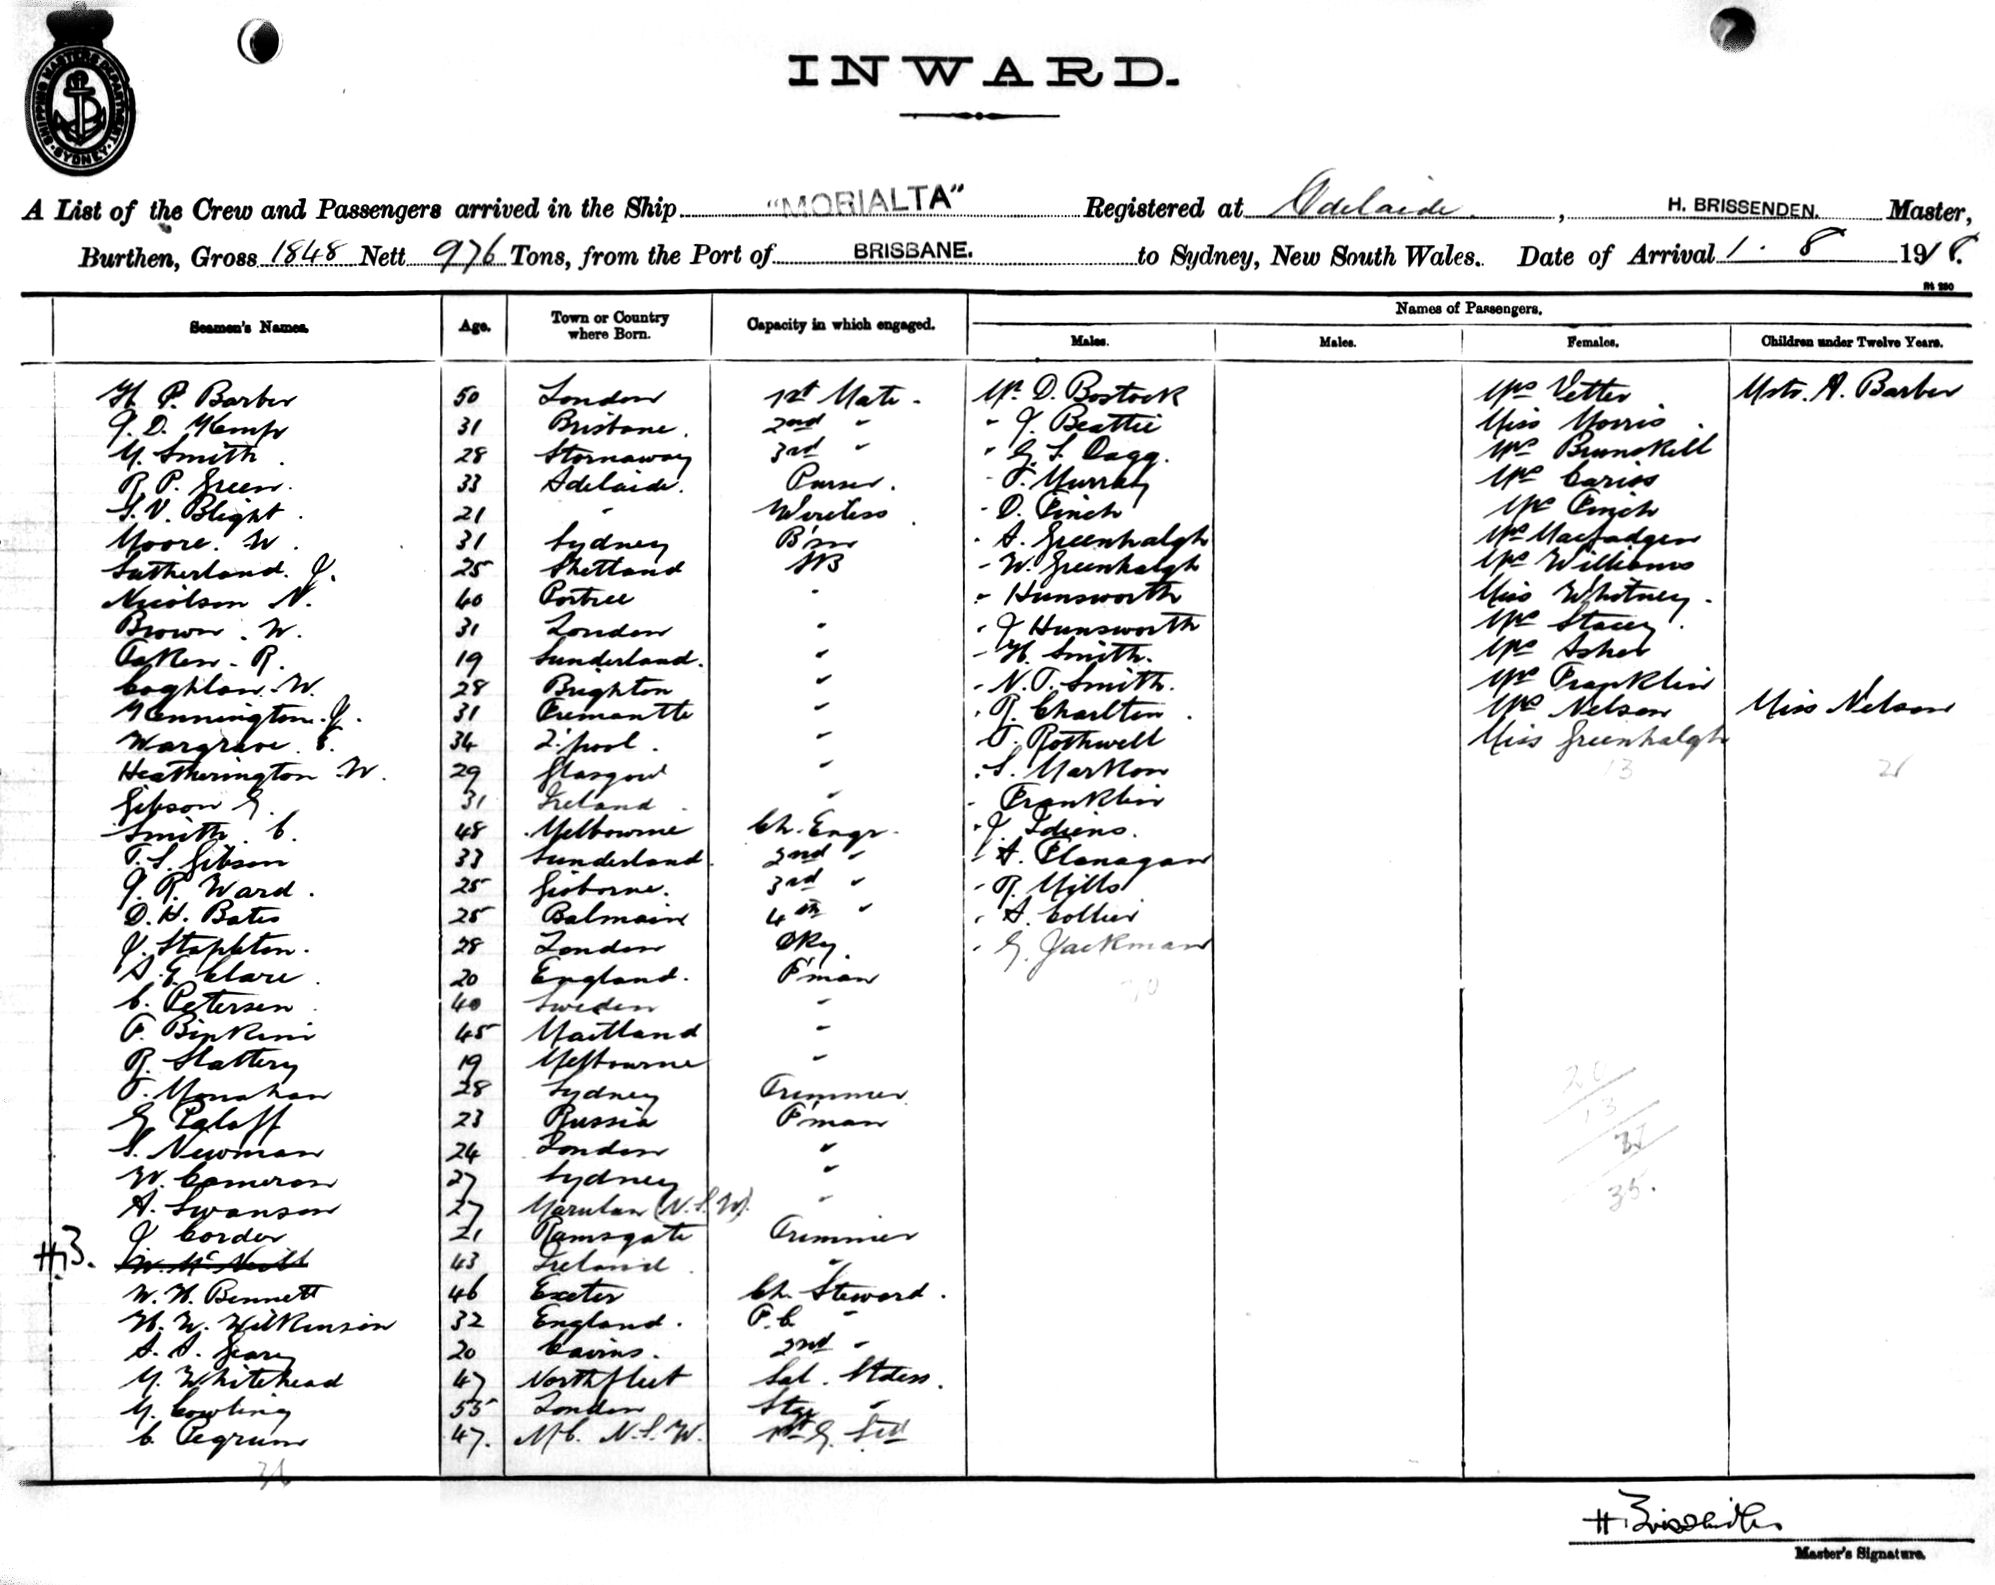 SHIPPING MASTERS DEPARTMENT SYDNEY
INWARD.
A List of the Crew and Passengers arrived in the Ship "MORIALTA" Registered at Adelaide, H. BRISSENDEN. Master,
Burthen, Gross 1848 Nett 976 Tons, from the Port of BRISBANE. to Sydney, New South Wales. Date of Arrival 1. 8 1918.
Names of Passengers.
Seamen's Names. Age. Town or Country where Born. Capacity in which engaged. Males. Males. Females. Children under Twelve Years.
H. P. Barber 50 London 1st Mate. Mr. D. Bostock Mrs Vetter Mstr. A. Barber
J. D. Kemp 31 Brisbane. 2nd " " J. Beattie Miss Morris
M. Smith 28 Stornaway 3rd " " G. S. Dagg. Mrs Brunskill
R. P. Green. 33 Adelaide. Purser. " T. Murray Mrs Cariss
S. V. Blight. 21 " Wireless " D. Finch Mrs Finch
Moore. W. 31 Sydney B'sn " A. Greenhalgh Mrs Macfadgen
Sutherland. J. 25 Shetland AB " W. Greenhalgh Mrs Williams
Nicolson N. 40 Portree " " Hunsworth Miss Whitney.
Brown. W. 31 London " " J Hunsworth Mrs Stacey.
Oaken. R. 19 Sunderland. " " H. Smith. Mrs Asher
Coghlan. W. 28 Brighton " " N. T. Smith. Mrs Franklin
Kennington. J. 31 Fremantle " " R. Charlton. Mrs Nelson Miss Nelson
Wargrave. T. 34 L'pool. " " T. Rothwell Miss Greenhalgh
Heatherington W. 29 Glasgow " " S. Markon 13 2
Gibson G. 31 Ireland " " Franklin
Smith C. 48 Melbourne Ch. Engr. " J. Idiens.
T. S. Gibson 33 Sunderland. 2nd " " A. Flanagan
J. R. Ward. 25 Gisborne. 3rd " " R. Mills
D. H. Bates 25 Balmain 4th " " A. Collier
J. Stapleton. 28 London Dky " G. Jackman
A. G. Clare. 20 England. F'man 20
C. Petersen 40 Sweden "
F. Binkini 45 Maitland "
R. Slattery 19 Melbourne "
T. Monahan 28 Sydney Trimmer 20
G Paloff 23 Russia F'man 13
S. Newman 24 London " 2
W. Cameron 27 Sydney "
A. Swanson 27 Marulan (N.S.W). " 35.
J Corder 21 Ramsgate Trimmer
H.B. W. McNeill 43 Ireland. "
W. H. Bennett 46 Exeter Ch. Steward.
H. W. Wilkinson 32 England. P.C "
A. A. Geary 20 Cairns. 2nd "
M. Whitehead 47 Northfleet Sal. Stdess.
M. Cowling 55 London Stge "
C. Pegrum 47. N.S.W. 1st G. Std
36
H. Brissenden
Master's Signature.